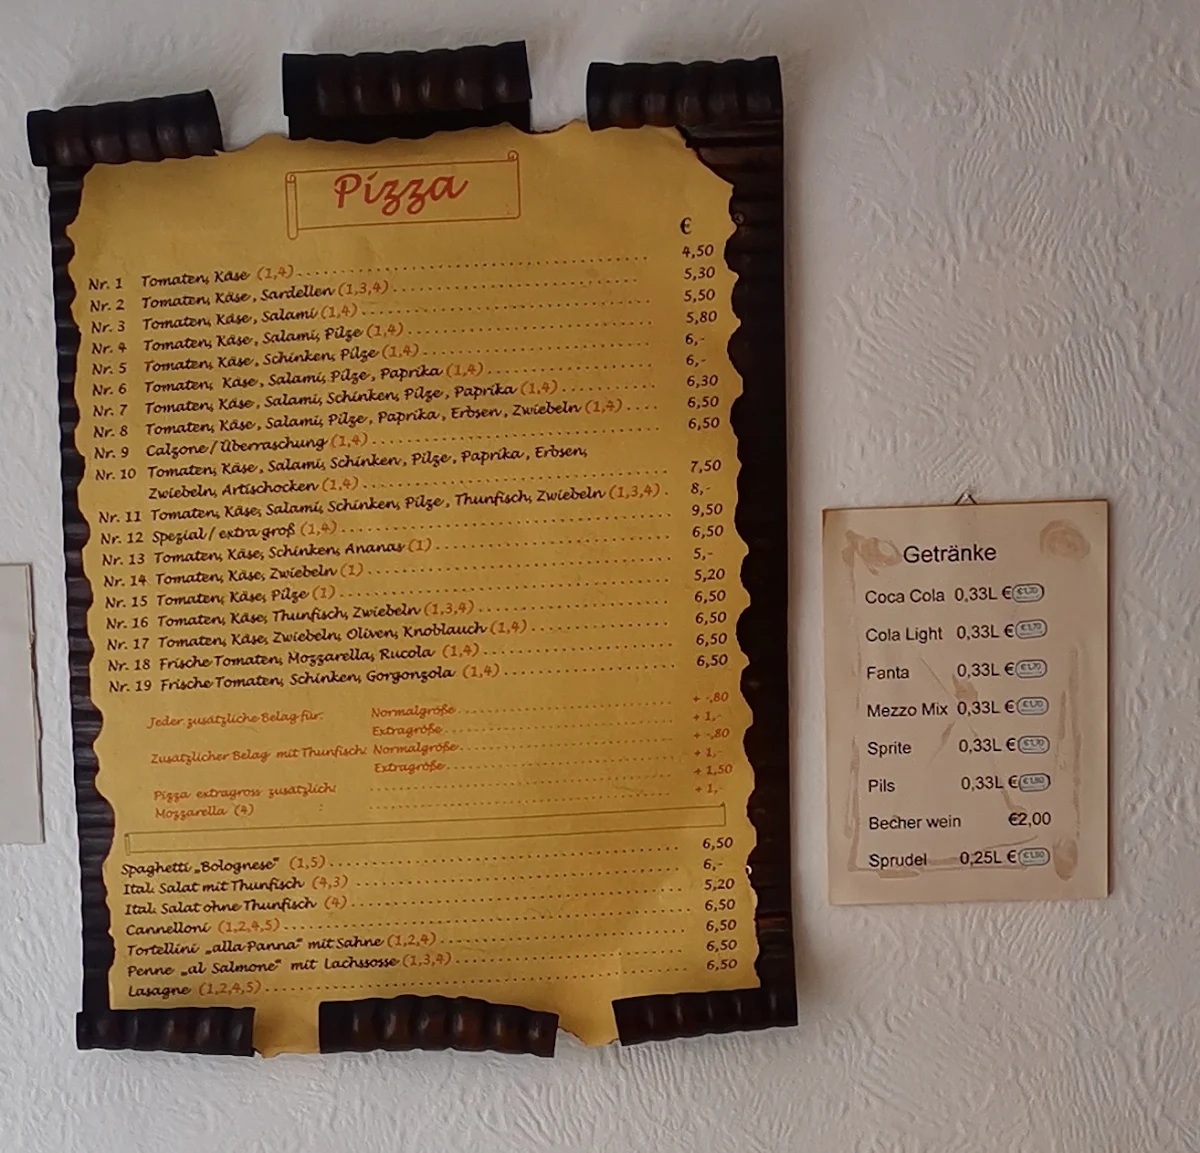 Pizza
€
Nr. 1 Tomaten, Käse (1,4) 4,50
Nr. 2 Tomaten, Käse, Sardellen (1,3,4) 5,30
Nr. 3 Tomaten, Käse, Salami (1,4) 5,50
Nr. 4 Tomaten, Käse, Salami, Pilze (1,4) 5,80
Nr. 5 Tomaten, Käse, Schinken, Pilze (1,4) 6,-
Nr. 6 Tomaten, Käse, Salami, Pilze, Paprika (1,4) 6,-
Nr. 7 Tomaten, Käse, Salami, Schinken, Pilze, Paprika (1,4) 6,30
Nr. 8 Tomaten, Käse, Salami, Pilze, Paprika, Erbsen, Zwiebeln (1,4) 6,50
Nr. 9 Calzone / Überraschung (1,4) 6,50
Nr. 10 Tomaten, Käse, Salami, Schinken, Pilze, Paprika, Erbsen,
Zwiebeln, Artischocken (1,4) 7,50
Nr. 11 Tomaten, Käse, Salami, Schinken, Pilze, Thunfisch, Zwiebeln (1,3,4) 8,-
Nr. 12 Spezial / extra groß (1,4) 9,50
Nr. 13 Tomaten, Käse, Schinken, Ananas (1) 6,50
Nr. 14 Tomaten, Käse, Zwiebeln (1) 5,-
Nr. 15 Tomaten, Käse, Pilze (1) 5,20
Nr. 16 Tomaten, Käse, Thunfisch, Zwiebeln (1,3,4) 6,50
Nr. 17 Tomaten, Käse, Zwiebeln, Oliven, Knoblauch (1,4) 6,50
Nr. 18 Frische Tomaten, Mozzarella, Rucola (1,4) 6,50
Nr. 19 Frische Tomaten, Schinken, Gorgonzola (1,4) 6,50
Jeder zusätzliche Belag für: Normalgröße + -,80
Extragröße + 1,-
Zusätzlicher Belag mit Thunfisch: Normalgröße + -,80
Extragröße + 1,-
Pizza extragross zusätzlich: + 1,50
Mozzarella (4) + 1,-
Spaghetti „Bolognese" (1,5) 6,50
Ital. Salat mit Thunfisch (4,3) 6,-
Ital. Salat ohne Thunfisch (4) 5,20
Cannelloni (1,2,4,5) 6,50
Tortellini „alla Panna" mit Sahne (1,2,4) 6,50
Penne „al Salmone" mit Lachssosse (1,3,4) 6,50
Lasagne (1,2,4,5) 6,50
Getränke
Coca Cola 0,33L € €1,70
Cola Light 0,33L € €1,70
Fanta 0,33L € €1,70
Mezzo Mix 0,33L € €1,70
Sprite 0,33L € €1,70
Pils 0,33L €
Becher wein €2,00
Sprudel 0,25L €